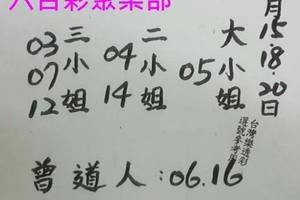 六合彩聚樂部
月15.18.20日
大小姐
05
二小姐
04
14
三小姐
03
07
12
台灣樂透彩
選號參考
曾道人:06.16